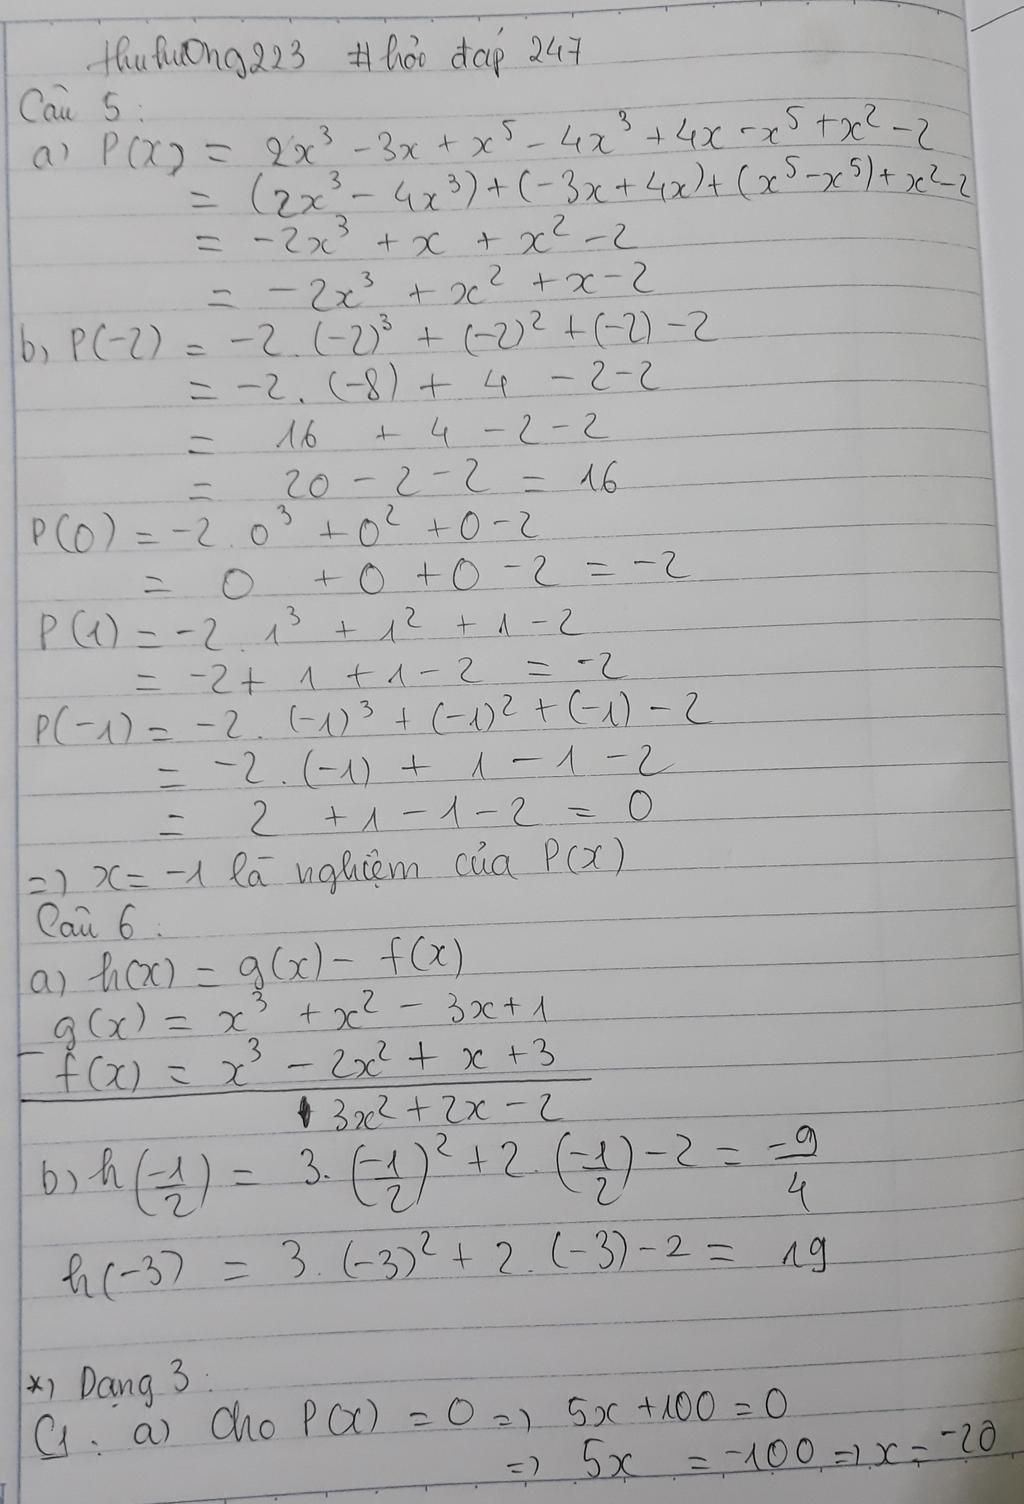 thuhuong223 #hỏi đáp 247
Câu 5:
a) P(x) = 2x³ - 3x + x⁵ - 4x³ + 4x - x⁵ + x² - 2
= (2x³ - 4x³) + (-3x + 4x) + (x⁵ - x⁵) + x² - 2
= -2x³ + x + x² - 2
= -2x³ + x² + x - 2
b, P(-2) = -2 . (-2)³ + (-2)² + (-2) - 2
= -2 . (-8) + 4 - 2 - 2
= 16 + 4 - 2 - 2
= 20 - 2 - 2 = 16
P(0) = -2 . 0³ + 0² + 0 - 2
= 0 + 0 + 0 - 2 = -2
P(1) = -2 . 1³ + 1² + 1 - 2
= -2 + 1 + 1 - 2 = -2
P(-1) = -2 . (-1)³ + (-1)² + (-1) - 2
= -2 . (-1) + 1 - 1 - 2
= 2 + 1 - 1 - 2 = 0
=> x = -1 là nghiệm của P(x)
Câu 6:
a) h(x) = g(x) - f(x)
g(x) = x³ + x² - 3x + 1
- f(x) = x³ - 2x² + x + 3
3x² + 2x - 2
b) h(-1/2) = 3 . (-1/2)² + 2 . (-1/2) - 2 = -9/4
h(-3) = 3 . (-3)² + 2 . (-3) - 2 = 19
*) Dạng 3:
C1: a) Cho P(x) = 0 => 5x + 100 = 0
=> 5x = -100 => x = -20